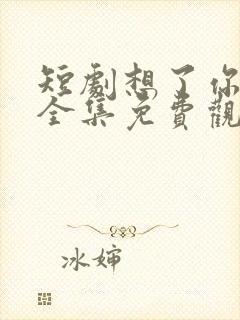 短劇想了你
全集免費觀
冰婶